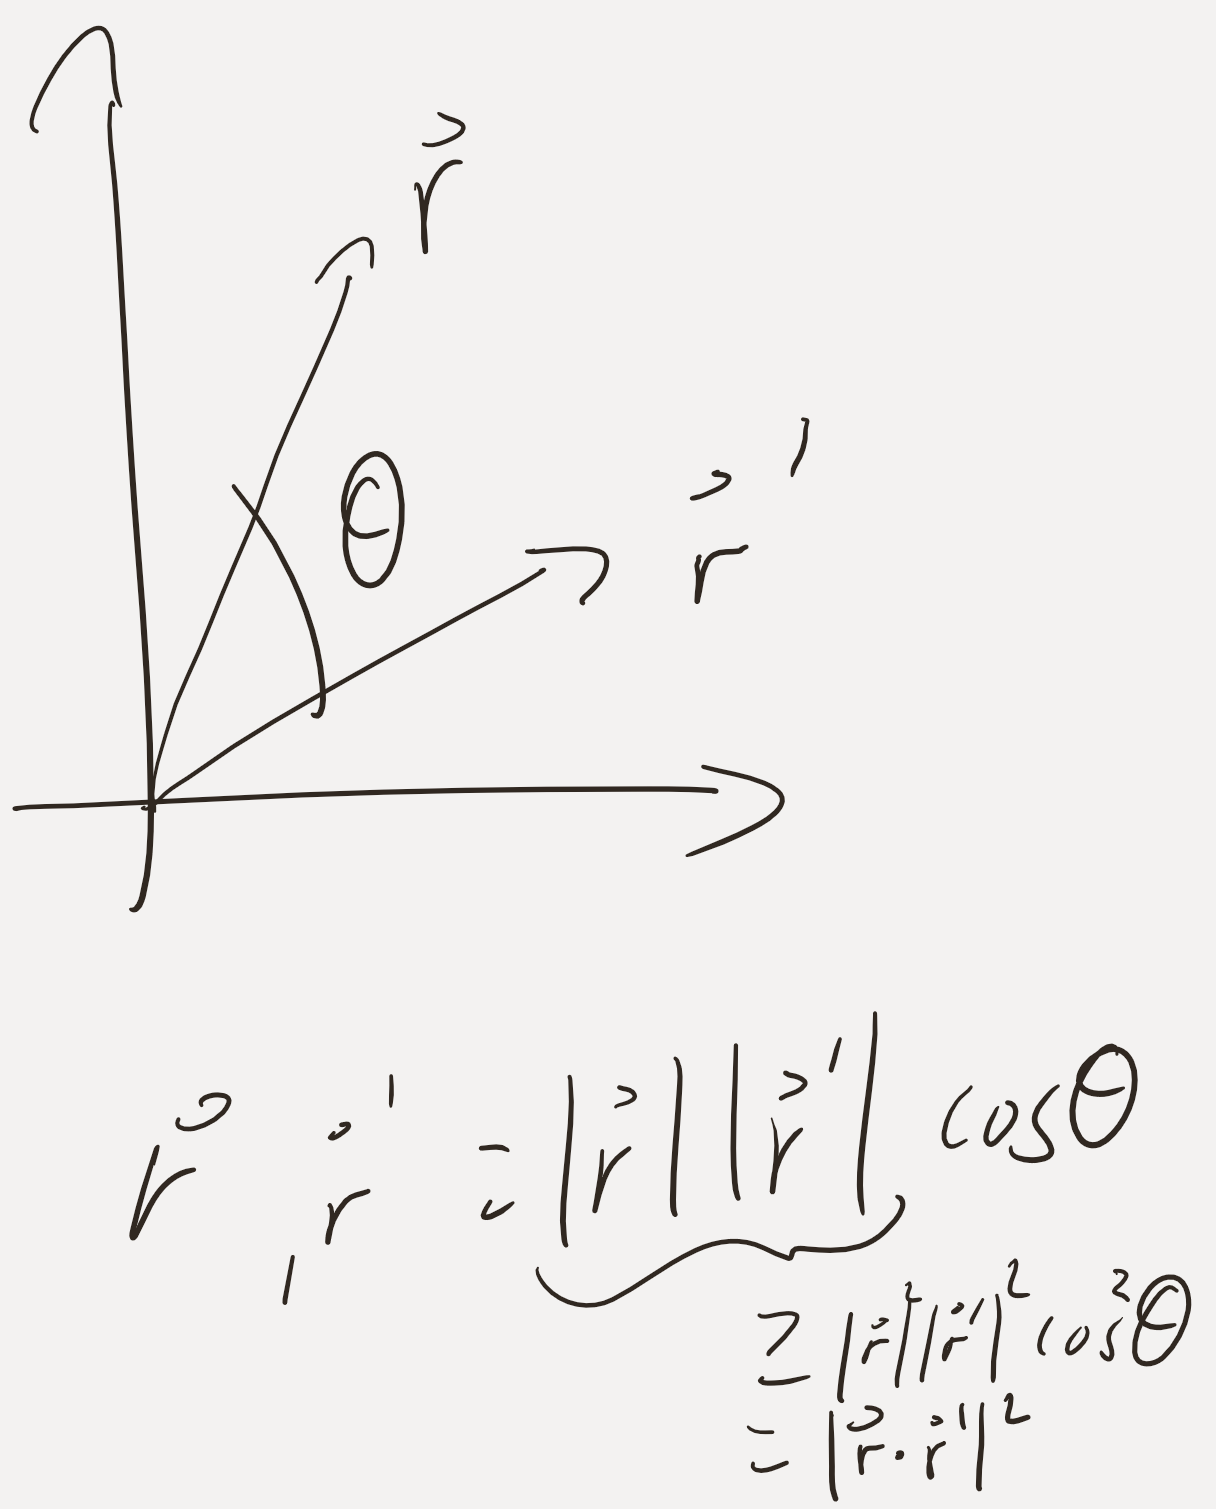 r⃗
θ
r⃗ '
r⃗ , r⃗ ' = |r⃗| |r⃗ '| cosθ
≥ |r⃗|² |r⃗ '|² cos²θ
= |r⃗ · r⃗ '|²